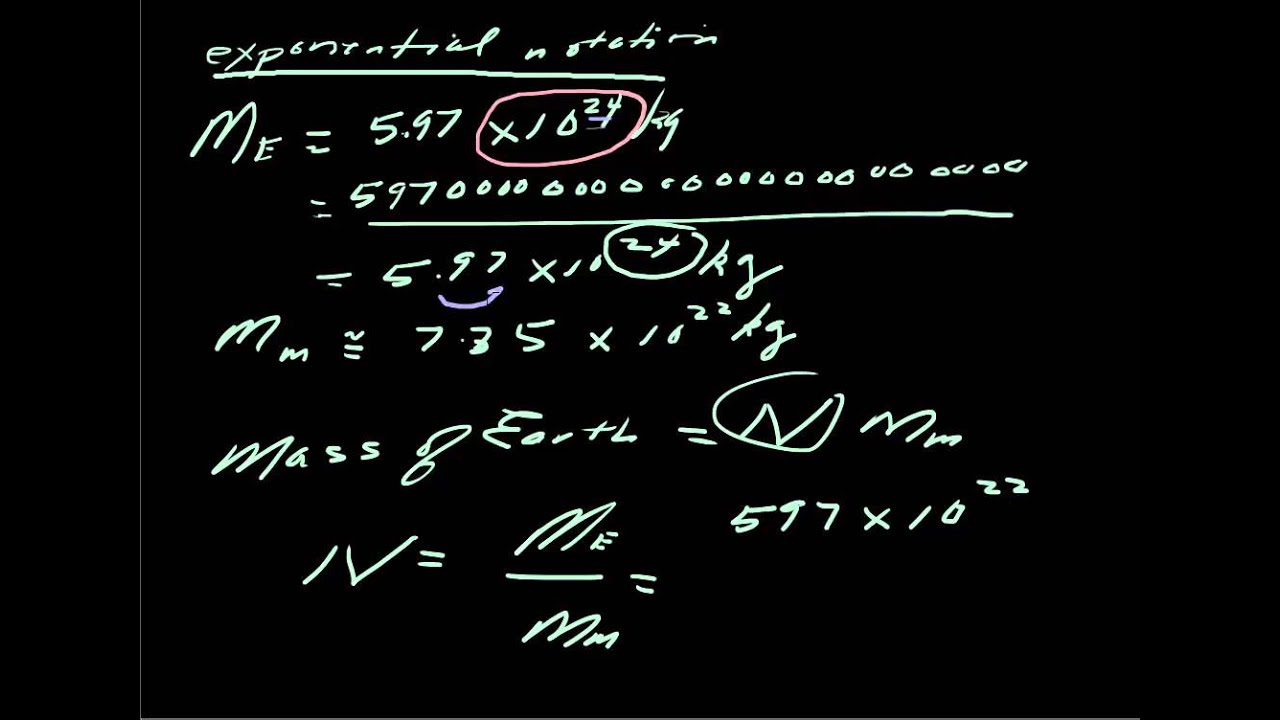 exponential notation
M_E = 5.97 × 10^24 kg
= 5970000000000000000000000
= 5.97 × 10^24 kg
M_m ≅ 7.35 × 10^22 kg
Mass of Earth = N M_m
597 × 10^22
N = M_E / M_m =